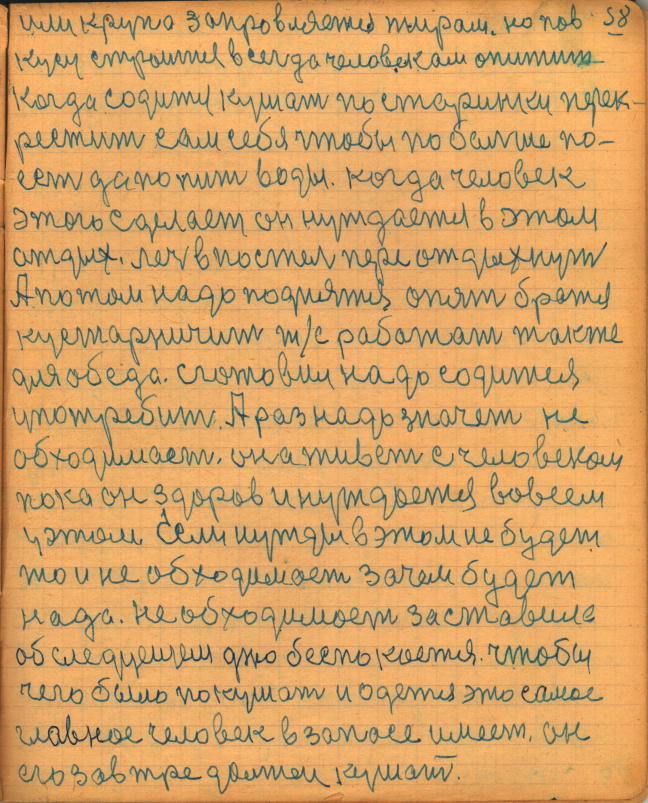 или крупа заправляется жирам. но пов 58
кусу строится всегда человекам опитит
Когда содится кушат по старинки перек-
рестит сам себя чтобы по болше по-
ест да попит воды. когда человек
этого сделает он нуждается в этом
атдых. леч в постел пере отдыхнут
А потом надо поднятся опят братся
кустарничит т/с работат также
для обеда. сготовил надо содится
употребит. А раз надо значет не
обходимаст. она живет с человеком
пока он здоров и нуждается вовсем
у этом. Если нужды в этом не будет
то и не обходимаст зачем будет
нада. не обходимост заставила
об следующем дню беспокоется. чтобы
чего было покушат и одется это самое
главное человек в запасе имеет. он
его завтре должен кушат.